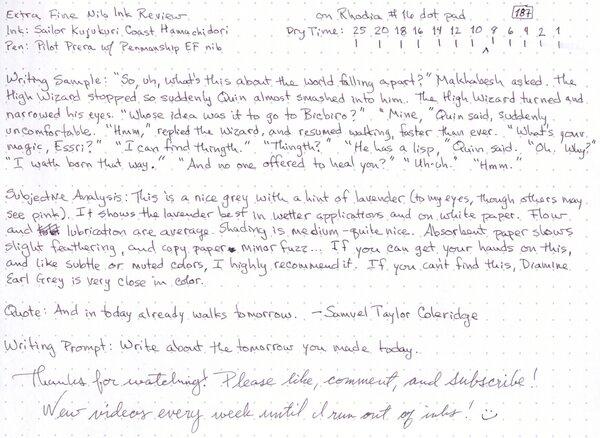 Extra Fine Nib Ink Review on Rhodia #16 dot pad 187
Ink: Sailor Kujukuri Coast Hamachidori Dry Time: 25 20 18 16 14 12 10 8 6 4 2 1
Pen: Pilot Prera w/ Penmanship EF nib
Writing Sample: "So, uh, what's this about the world falling apart?" Makhabesh asked. The
High Wizard stopped so suddenly Quin almost smashed into him. The High Wizard turned and
narrowed his eyes. "Whose idea was it to go to Bicbiro?" "Mine," Quin said, suddenly
uncomfortable. "Hmm," replied the Wizard, and resumed walking, faster than ever. "What's your
magic, Essri?" "I can find thingth." "Thingth?" "He has a lisp," Quin said. "Oh. Why?"
"I wath born that way." "And no one offered to heal you?" "Uh-oh." "Hmm."
Subjective Analysis: This is a nice grey with a hint of lavender (to my eyes, though others may
see pink). It shows the lavender best in wetter applications and on white paper. Flow
and lubrication are average. Shading is medium-quite nice. Absorbent paper shows
slight feathering, and copy paper minor fuzz... If you can get your hands on this,
and like subtle or muted colors, I highly recommend it. If you can't find this, Diamine
Earl Grey is very close in color.
Quote: And in today already walks tomorrow. -Samuel Taylor Coleridge
Writing Prompt: Write about the tomorrow you made today.
Thanks for watching! Please like, comment, and subscribe!
New videos every week until I run out of inks!